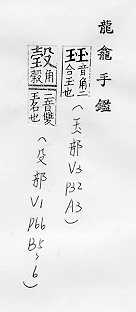 龍龕手鑑
玨 音角二
合玉也 (玉部 V3 P32 A3)
角 二音雙
玉名也 (殳部 V1 P66 B5,6)